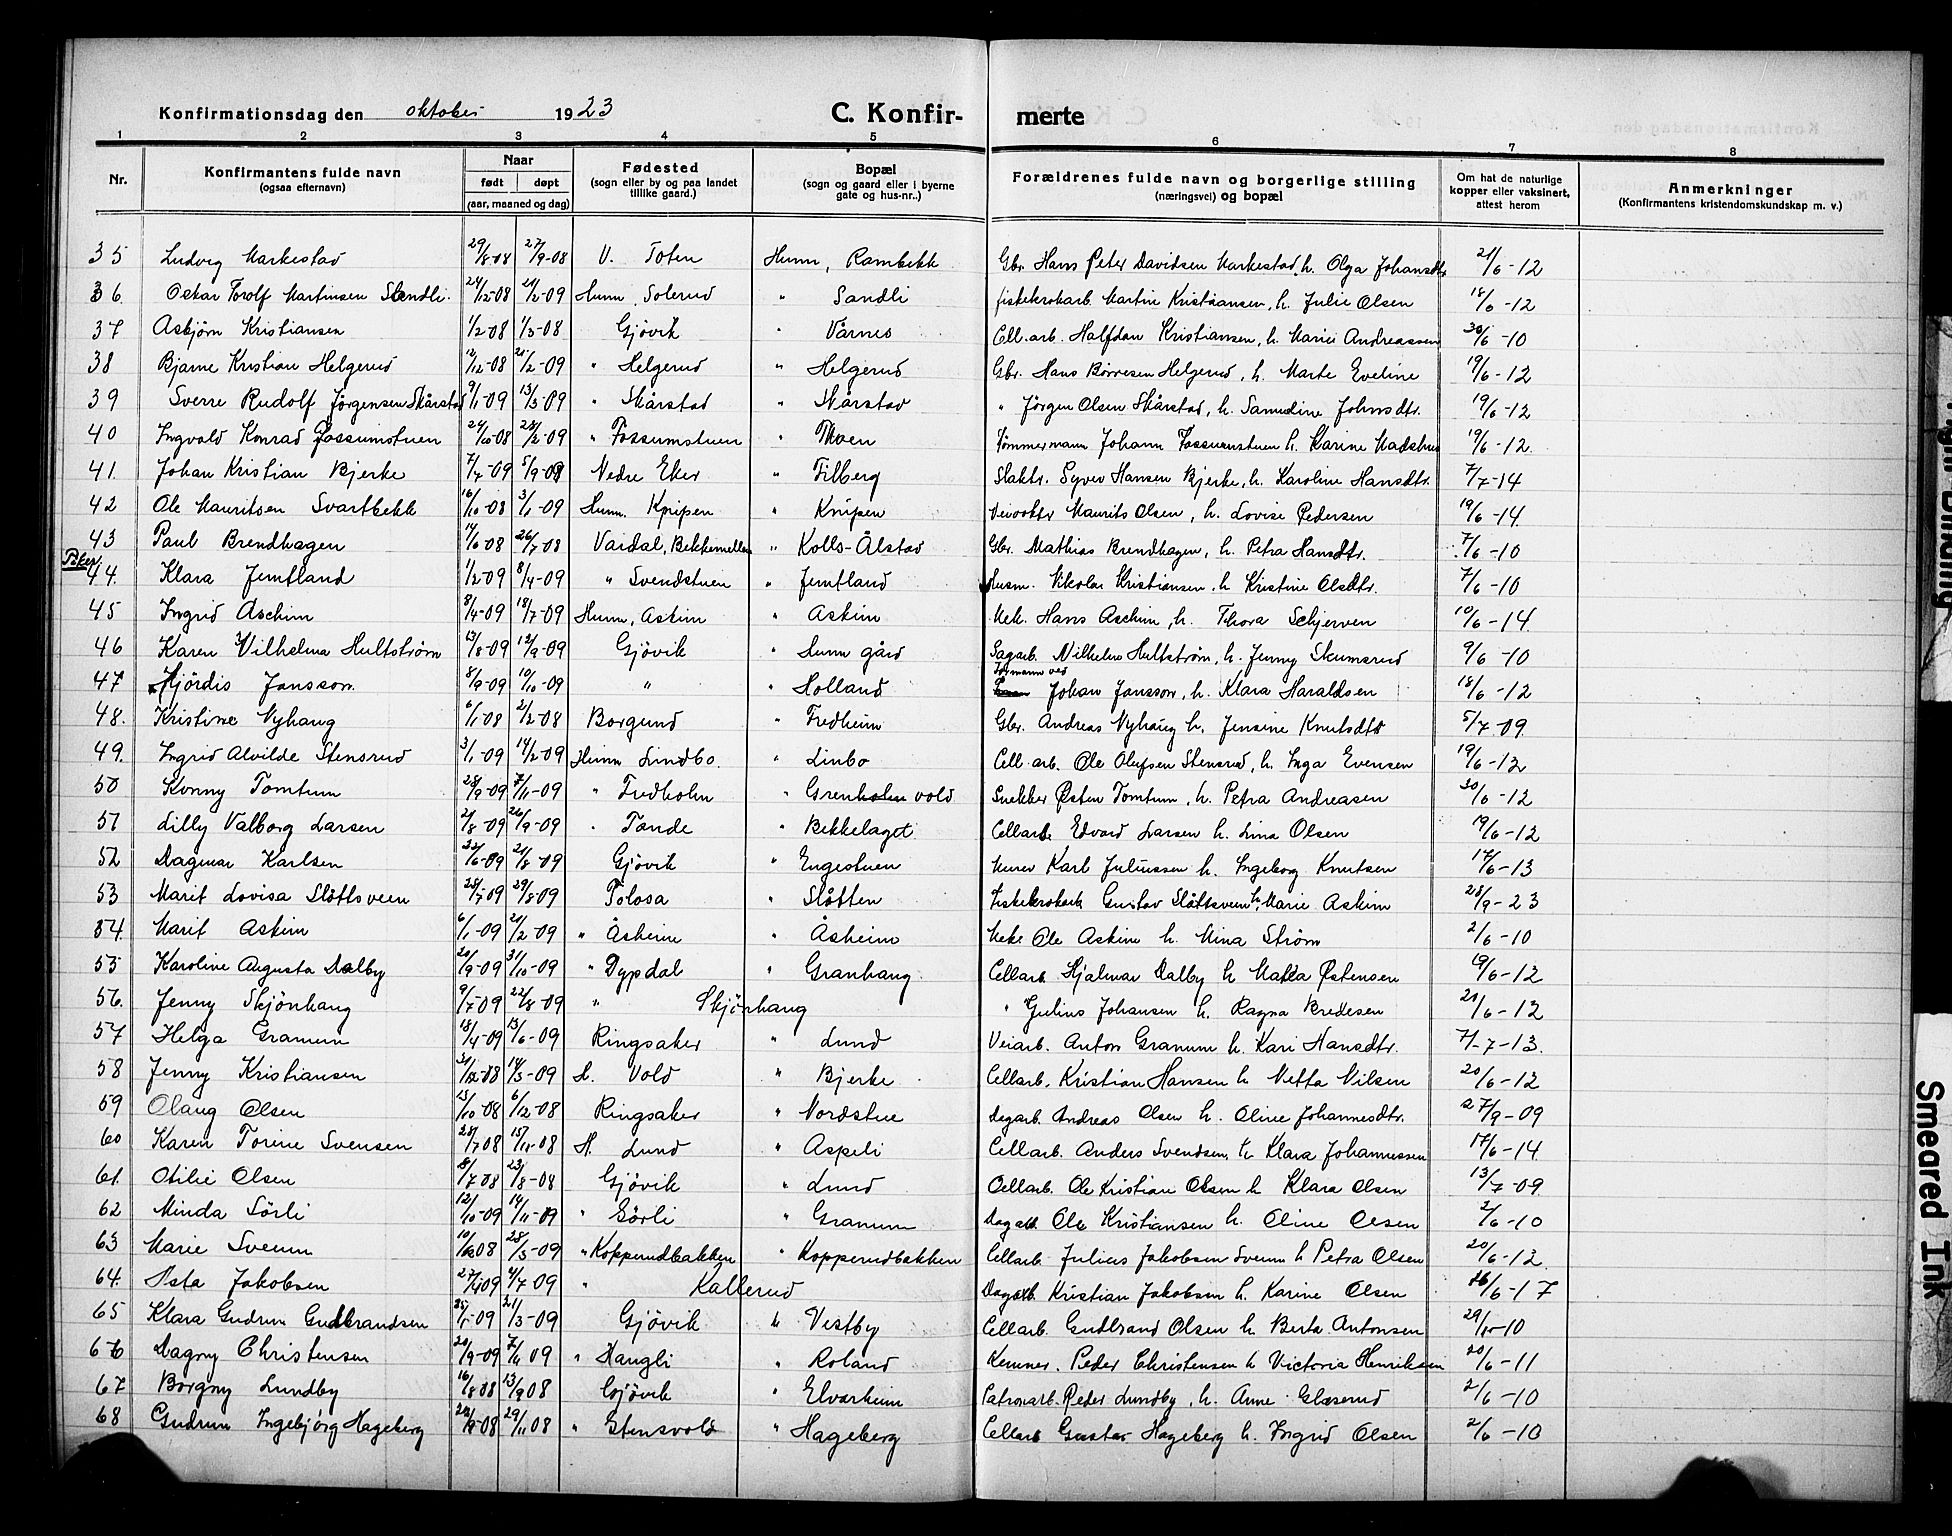 Konfirmationsdag den oktober 1923 C. Konfir- merte
1 2 3 4 5 6 7 8
Nr. Konfirmantens fulde navn (ogsaa efternavn) Naar født døpt (aar, maaned og dag) Fødested (sogn eller by og paa landet tillike gaard.) Bopæl (sogn og gaard eller i byerne gate og hus-nr..) Forældrenes fulde navn og borgerlige stilling (næringsvei) og bopæl Om hat de naturlige kopper eller vaksinert, attest herom Anmerkninger (Konfirmantens kristendomskundskap m. v.)
35 Ludvig Markestad 29/8-08 27/9-08 V. Toten Hunn, Rambekk Gbr. Hans Peter Davidsen Markestad, h. Olga Johansdtr 21/6-12
36. Oskar Torolf Martinsen Sandli. 24/12-08 21/2-09 Hunn, Solerud " Sandli fiskekrokarb. Martin Kristiansen, h. Julie Olsen 18/6-12
37 Asbjørn Kristiansen 1/2-08 1/3-08 Gjövik " Vårnes Cell.arb. Halfdan Kristiansen, h. Marie Andreassen 30/6-10
38 Bjarne Kristian Helgerud 12/12-08 21/2-09 " Helgerud " Helgerud Gbr. Hans Börresen Helgerud, h. Marte Eveline 19/6-12
39 Sverre Rudolf Jörgensen Skårstad 9/1-09 13/3-09 " Skårstad " Skårstad " Jörgen Olsen Skårstad, h. Samudine Johnsdtr. 19/6-12
40 Ingvald Konrad Fossumstuen 24/10-08 28/2-09 " Fossumstuen " Thoen Tömmermann Johann Fossumstuen h. Karine Madsdtr 19/6-12
41. Johan Kristian Bjerke 7/7-09 5/9-09 Nedre Eker " Filberg Slaktr. Syver Hansen Bjerke, h. Karoline Hansdtr. 7/7-14
42 Ole Mauritsen Svartbekk 16/10-08 3/1-09 Hunn. Knipen " Knipen Veivokter Maurits Olsen, h. Lovise Pedersen 19/6-14.
43 Paul Brendhagen 14/6-08 26/7-08 Vardal, Bekkemellem " Kolls-Ålstad Gbr. Mathias Brendhagen, h. Petra Hansdtr. 7/6-10
Piker
44. Klara Jemtland 1/2-09 8/4-09 " Svendstuen " Jemtland Husm. Nikolai Kristiansen, h Kristine Olsdtr. 7/6-10
45 Ingrid Aschim 8/4-09 18/7-09 Hunn, Askim " Askim Mek. Hans Aschim, h. Thora Schjerven 10/6-14.
46 Karen Vilhelma Hultström 13/8-09 12/9-09 Gjövik " Hunn gård Sagarb. Vilhelm Hultström, h. Jenny Skumsrud 9/6-10
47 Hjördis Jansson. 8/9-09 10/10-09 " " Holland Johan Jansson, h. Klara Haraldsen 18/6-12
48. Kristine Nyhaug 6/1-08 2/2-08 Borgund " Fredheim Gbr. Andreas Nyhaug h. Jensine Knutsdtr 5/7-09.
49. Ingrid Alvilde Stensrud 3/1-09 14/2-09 Hunn Lindbo. " Linbo Cell.arb. Ole Olufsen Stensrud, h. Inga Evensen 19/6-12
50 Konny Tomtum 28/9-09 7/11-09 " Fredholm " Grenholm vold Snekker Østen Tomtum, h. Petra Andreasen 30/6-12
51 Lilly Valborg Larsen 2/8-09 26/9-09 " Tande " Bekkelaget Cellarb Edvard Larsen h. Lina Olsen 19/6-12
52 Dagmar Karlsen /6-09 21/8-09 Gjövik " Engestuen Murer Karl Juliussen h. Ingeborg Knutsen 17/6-13
53 Marit Lovisa Slåttsveen 25/7-09 29/8-09 Tolosa " Slåtten Fiskekrokarb Gustav Slåttsveen h. Marie Askim 28/9-23
54. Marit Askim 6/1-09 21/2-09 " Åsheim " Åsheim Mek. Ole Askim h. Mina Ström 2/6-10
55 Karoline Augusta Dalby 20/9-09 31/10-09 " Dypdal " Granhaug Cellarb. Hjalmar Dalby h Matea Østensen 19/6-12
56. Jenny Skjönhaug 9/7-09 22/8-09 " Skjönhaug " Gulius Johansen h. Ragna Bredesen 20/6-12
57 Helga Granum 18/4-09 13/6-09 Ringsaker " Lund Veiarb. Anton Granum h. Kari Hansdtr. 7/-7-13.
58 Jenny Kristiansen 31/12-08 14/3-09 H. Vold " Bjerke Cellarb. Kristian Hansen h Netta Nilsen 20/6-12
59 Olaug Olsen 13/10-08 6/12-08 Ringsaker " Nordstue Dagarb. Andreas Olsen h. Oline Johannesdtr. 27/9-09
60 Karen Torine Svensen 28/7-08 15/11-08 H. Lund " Aspeli Cellarb. Anders Svendsen, h Klara Johannessen 17/6-14
61. Otilie Olsen 8/7-08 23/8-08 Gjövik " Lund Cellarb. Ole Kristian Olsen h Klara Olsen 13/7-09
62 Minda Sörli 12/10-09 14/11-09 " Sörli " Granum Dagarb Ole Kristiansen h. Oline Olsen 2/6-10
63 Marie Sveum 10/12-08 28/3-09 " Kopperudbakken " Kopperudbakken Cellarb. Julius Jakobsen Sveum h Petra Olsen 20/6-12
64. Asta Jakobsen 27/4-09 4/7-09 " Kallerud Dagarb. Kristian Jakobsen h. Karine Olsen 16/6-17
65 Klara Gudrun Gudbrandsen 25/1-09 21/3-09 Gjövik " Vestby Cellarb. Gudbrand Olsen h Berta Antonsen 29/10-10
66 Dagny Christensen 20/9-09 7/11 09 " Haugli " Roland Kemner. Peder Christensen h Victoria Henriksen 20/6-11
67 Borgny Lundby 16/8-08 13/9 08 Gjövik " Elvarheim Patronarb. Peder Lundby, h. Anne Glæserud 2/6-10
68 Gudrun Ingebjörg Hageberg 22/9-08 29/11 08 " Stensvold " Hageberg Cellarb Gustav Hageberg h. Ingrid Olsen 2/6-10
Tight Binding
Smeared Ink